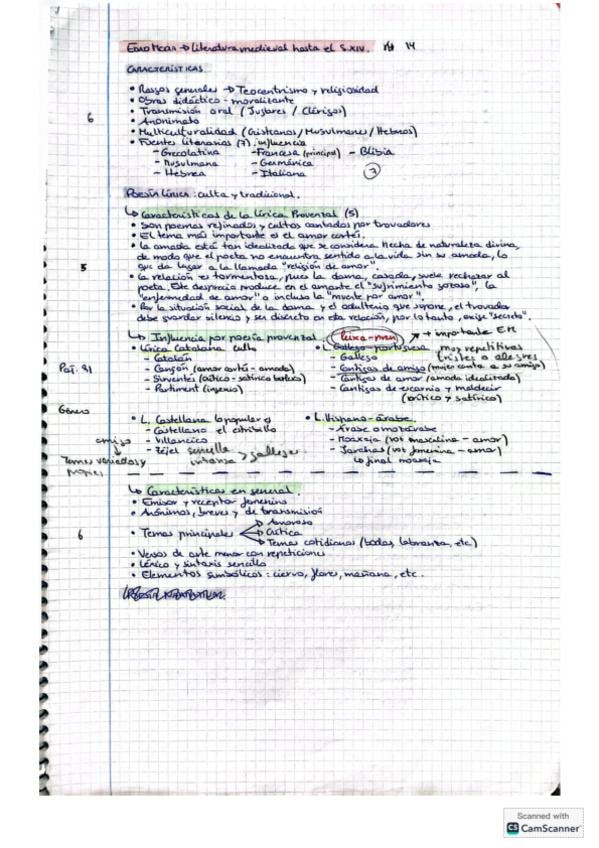 Edad Media → Literatura medieval hasta el S.XIV. 14
CARACTERÍSTICAS.
• Rasgos generales → Teocentrismo y religiosidad
• Obras didáctico-moralizante
• Transmisión oral (Juglares / Clérigos)
6
• Anonimato
• Multiculturalidad (Cristianos / Musulmanes / Hebreos)
• Fuentes literarias (7): influencia
- Grecolatina - Francesa (principal) - Biblia
- Musulmana - Germánica
- Hebrea - Italiana 7
Poesía Lírica: culta y tradicional.
↳ Características de la Lírica Provenzal (5)
• Son poemas refinados y cultos cantados por trovadores
• El tema más importante es el amor cortés.
• La amada está tan idealizada que se considera hecha de naturaleza divina,
5
de modo que el poeta no encuentra sentido a la vida sin su amada, lo
que da lugar a la llamada "religión de amor".
• La relación es tormentosa, pues la dama, casada, suele rechazar al
poeta. Este desprecio produce en el amante el "sufrimiento gozoso", la
"enfermedad de amor" o incluso la "muerte por amor".
• Por la situación social de la dama y el adulterio que supone, el trovador
debe guardar silencio y ser discreto en esta relación, por lo tanto, exige "secreto".
↳ Influencia por poesía provenzal. leixa-pren → + importante EM
• Lírica Catalana culta • L. Gallego-portuguesa muy repetitivas
Pág. 91
- Catalán - Gallego tristes o alegres
- Cançon (amor cortés-amada) - Cantigas de amigo (mujer canta a su amigo)
- Sirventes (crítico-satírico burlesco) - Cantigas de amor (amada idealizada)
- Partiment (ingenio) - Cantigas de escarnio y maldecir
(crítico y satírico)
Género
• L. Castellana lo popular es • L. Hispano-árabe.
- Castellano el estribillo - Árabe o mozárabe
amigo
- Villancico - Moaxaja (voz masculina - amor)
- Zéjel sencilla - Jarchas (voz femenina - amor)
Temas variados y intensa > gallega ↳ final moaxaja
propios
↳ Características en general.
• Emisor y receptor femenino
• Anónimas, breves y de transmisión
→ Amoroso
6
• Temas principales → Crítica
→ Temas cotidianos (bodas, labranza, etc)
• Versos de arte menor con repeticiones
• Léxico y sintaxis sencilla
• Elementos simbólicos: ciervo, flores, mañana, etc.
Scanned with
CS CamScanner